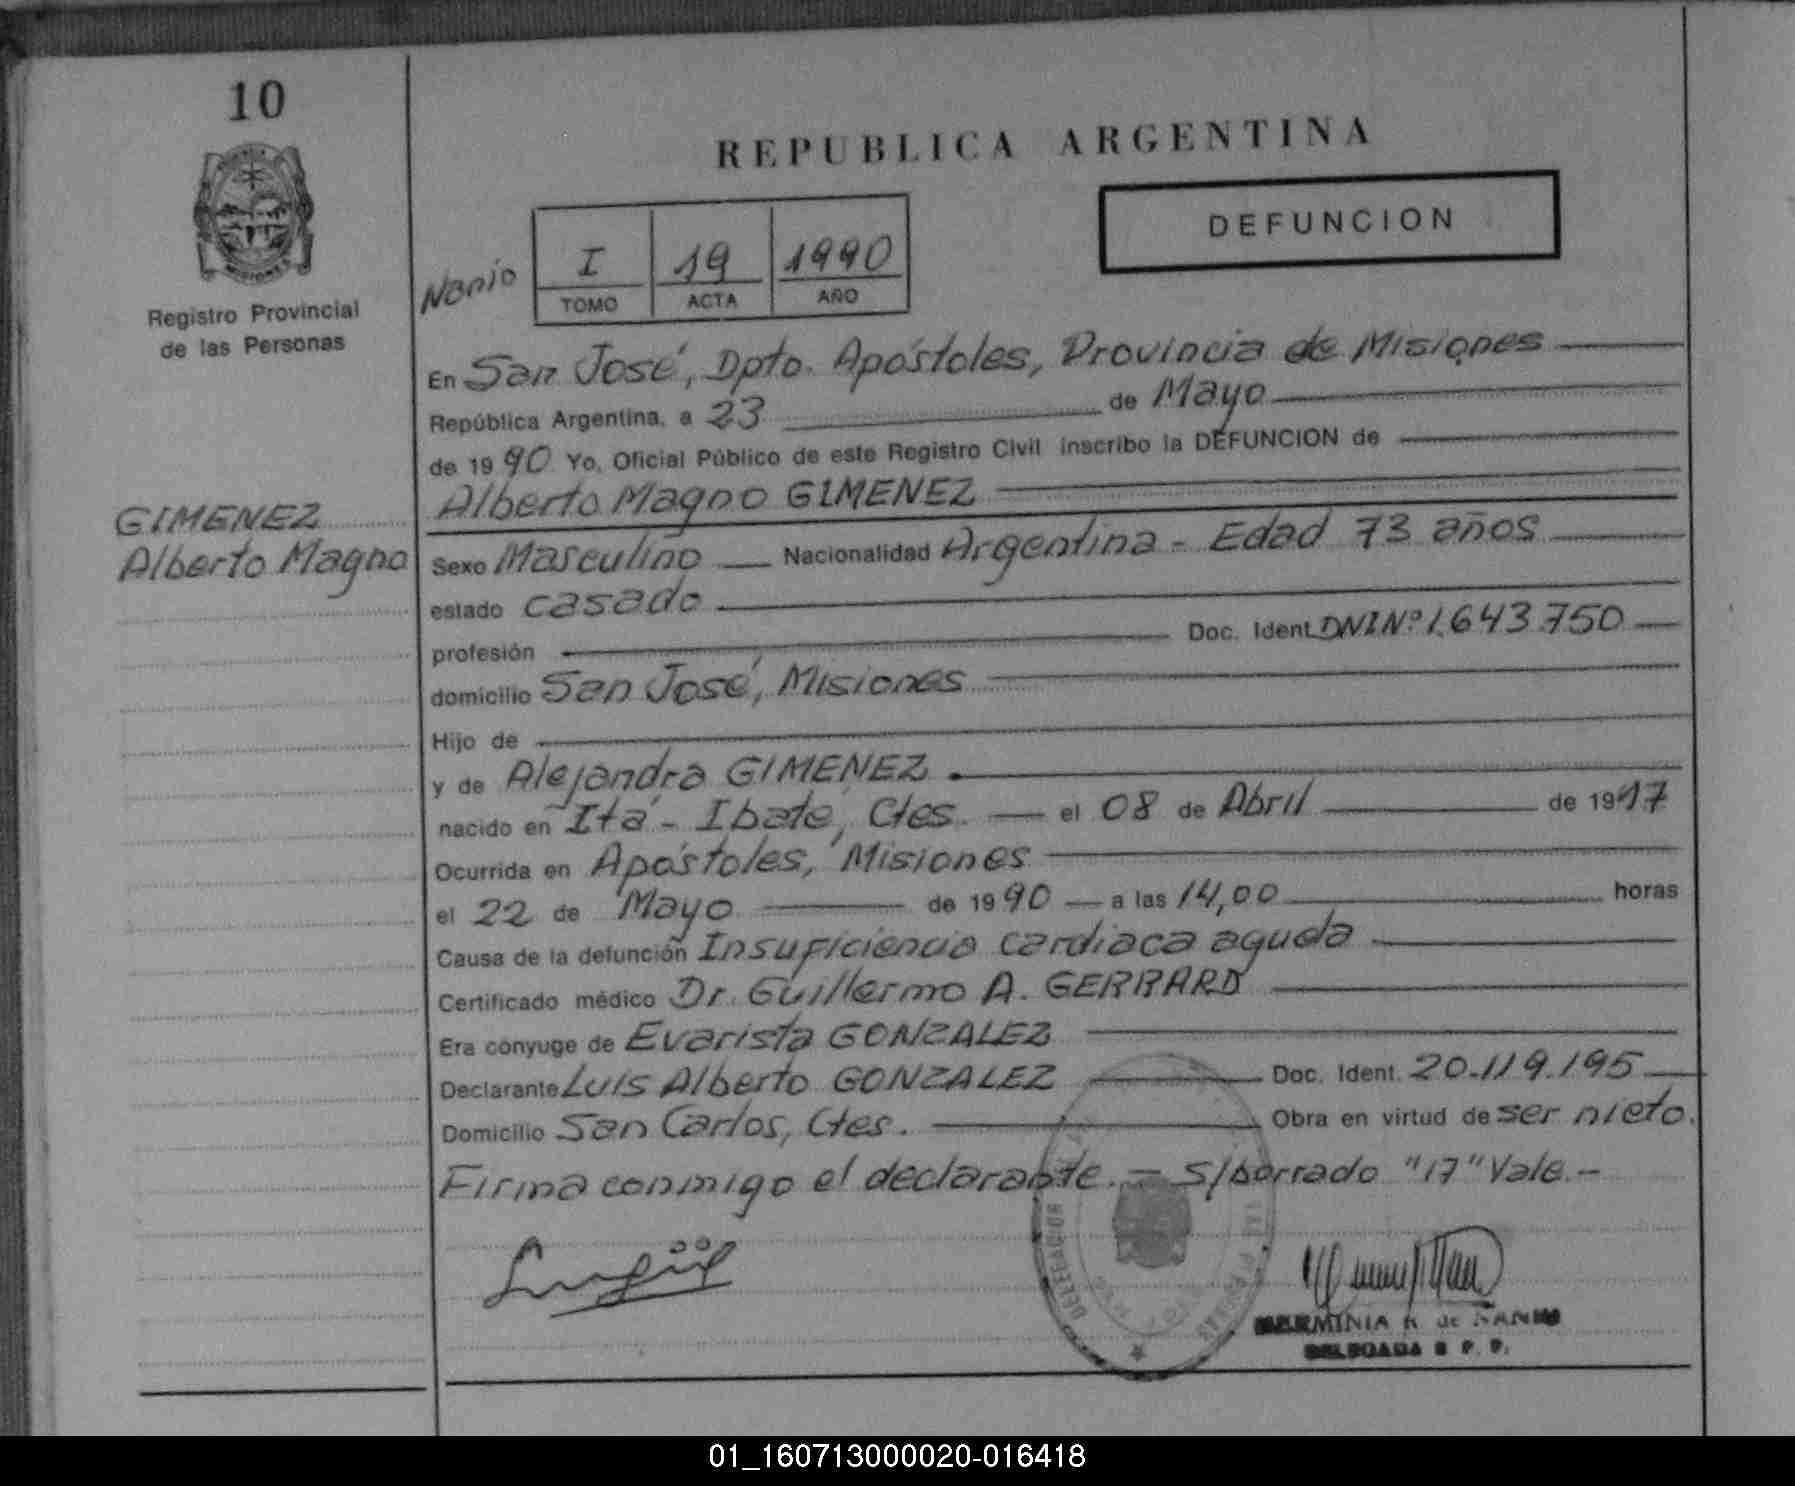 10
REPUBLICA ARGENTINA
DEFUNCION
MISIONES
Registro Provincial
de las Personas
I 19 1990
TOMO ACTA AÑO
En San José, Dpto. Apóstoles, Provincia de Misiones
República Argentina, a 23 de Mayo
de 1990 Yo, Oficial Público de este Registro Civil inscribo la DEFUNCION de
Alberto Magno GIMENEZ
GIMENEZ
Alberto Magno
Sexo Masculino Nacionalidad Argentina - Edad 73 años
estado casado
profesión Doc. Ident. DNI Nº 1.643.750
domicilio San José, Misiones
Hijo de
y de Alejandra GIMENEZ
nacido en Itá - Ibaté, Ctes. el 08 de Abril de 1917
Ocurrida en Apóstoles, Misiones
el 22 de Mayo de 1990 a las 14,00 horas
Causa de la defunción Insuficiencia cardíaca aguda
Certificado médico Dr. Guillermo A. GERRARD
Era cónyuge de Evarista GONZALEZ
Declarante Luis Alberto GONZALEZ Doc. Ident. 20.119.195
Domicilio San Carlos, Ctes. Obra en virtud de ser nieto.
Firma conmigo el declarante. - S/borrado "17" Vale. -
HERMINIA R. de
DELEGADA R. P. P.
01_160713000020-016418